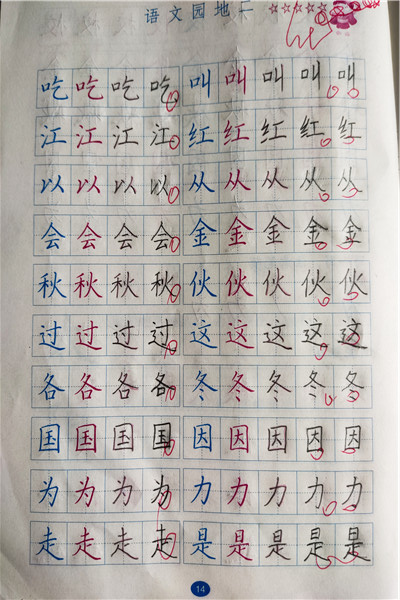 语文园地一
吃吃吃吃叫叫叫叫叫
江江江江红红红红红
以以以以从从从从从
会会会会金金金金金
秋秋秋秋伙伙伙伙伙
过过过过这这这这这
各各各各冬冬冬冬冬
国国国国因因因因因
为为为为力力力力力
走走走走是是是是是
14